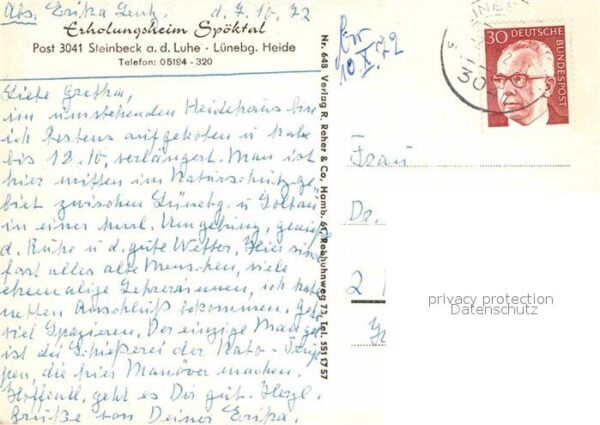 Abs. Erika d. 7.10.72
Erholungsheim Spöktal
Post 3041 Steinbeck a. d. Luhe · Lünebg. Heide
Telefon: 05194 - 320
Liebe Gretha,
im umstehenden Heidehaus bin
ich bestens aufgehoben u. habe
bis 12.10. verlängert. Man ist
hier mitten im Naturschutzge-
biet zwischen Lünebg. u. Soltau
in einer herrl. Umgebung, genieße
d. Ruhe u. d. gute Wetter. Hier sind
fast alles alte Menschen, viele
ehemalige Lehrerinnen, ich habe
netten Anschluß bekommen. Geh
viel spazieren. Der einzige Mangel
ist die Schießerei der Nato-Trup-
pen, die hier Manöver machen.
Hoffentl. geht es Dir gut. Herzl.
Grüße von Deiner Erika.
Nr. 648 Verlag R. Reher & Co., Hamb. 61, Rebhuhnweg 73, Tel. 5511757
10.X.72
30 DEUTSCHE BUNDESPOST
30
Frau
Dr.
2
privacy protection
Datenschutz